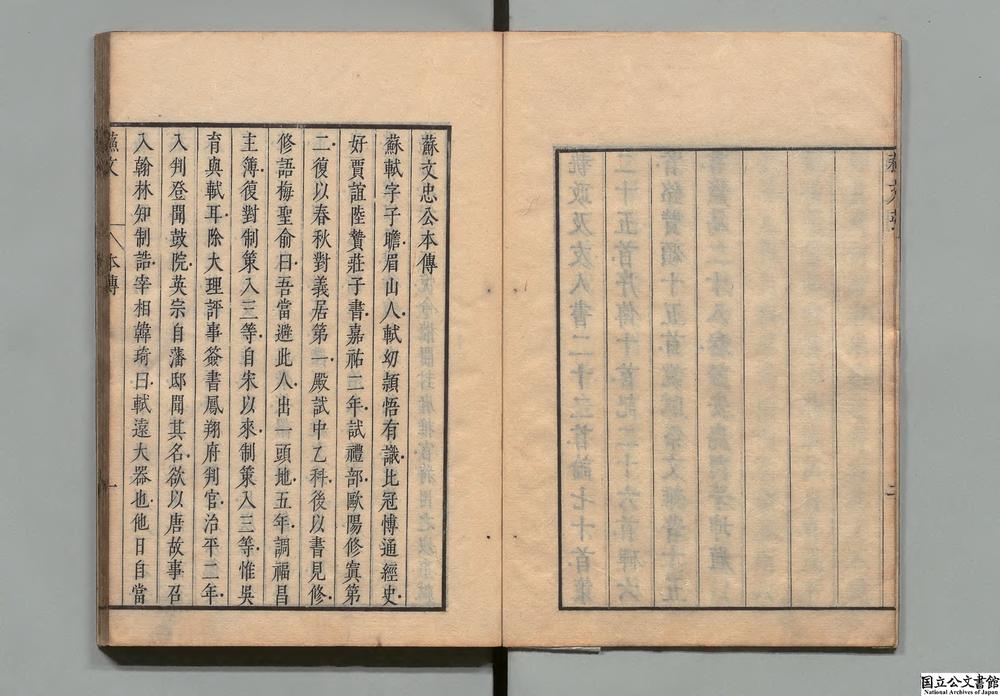 二
蘇文忠公本傳
蘇軾字子瞻眉山人軾幼頴悟有識比冠博通經史
好賈誼陸贄莊子書嘉祐二年試禮部歐陽修寘第
二復以春秋對義居第一殿試中乙科後以書見修
修語梅聖俞曰吾當避此人出一頭地五年調福昌
主簿復對制策入三等自宋以來制策入三等惟吳
育與軾耳除大理評事簽書鳳翔府判官治平二年
入判登聞鼓院英宗自藩邸聞其名欲以唐故事召
入翰林知制誥宰相韓琦曰軾遠大器也他日自當
蘇文 本傳 一
国立公文書館
National Archives of Japan